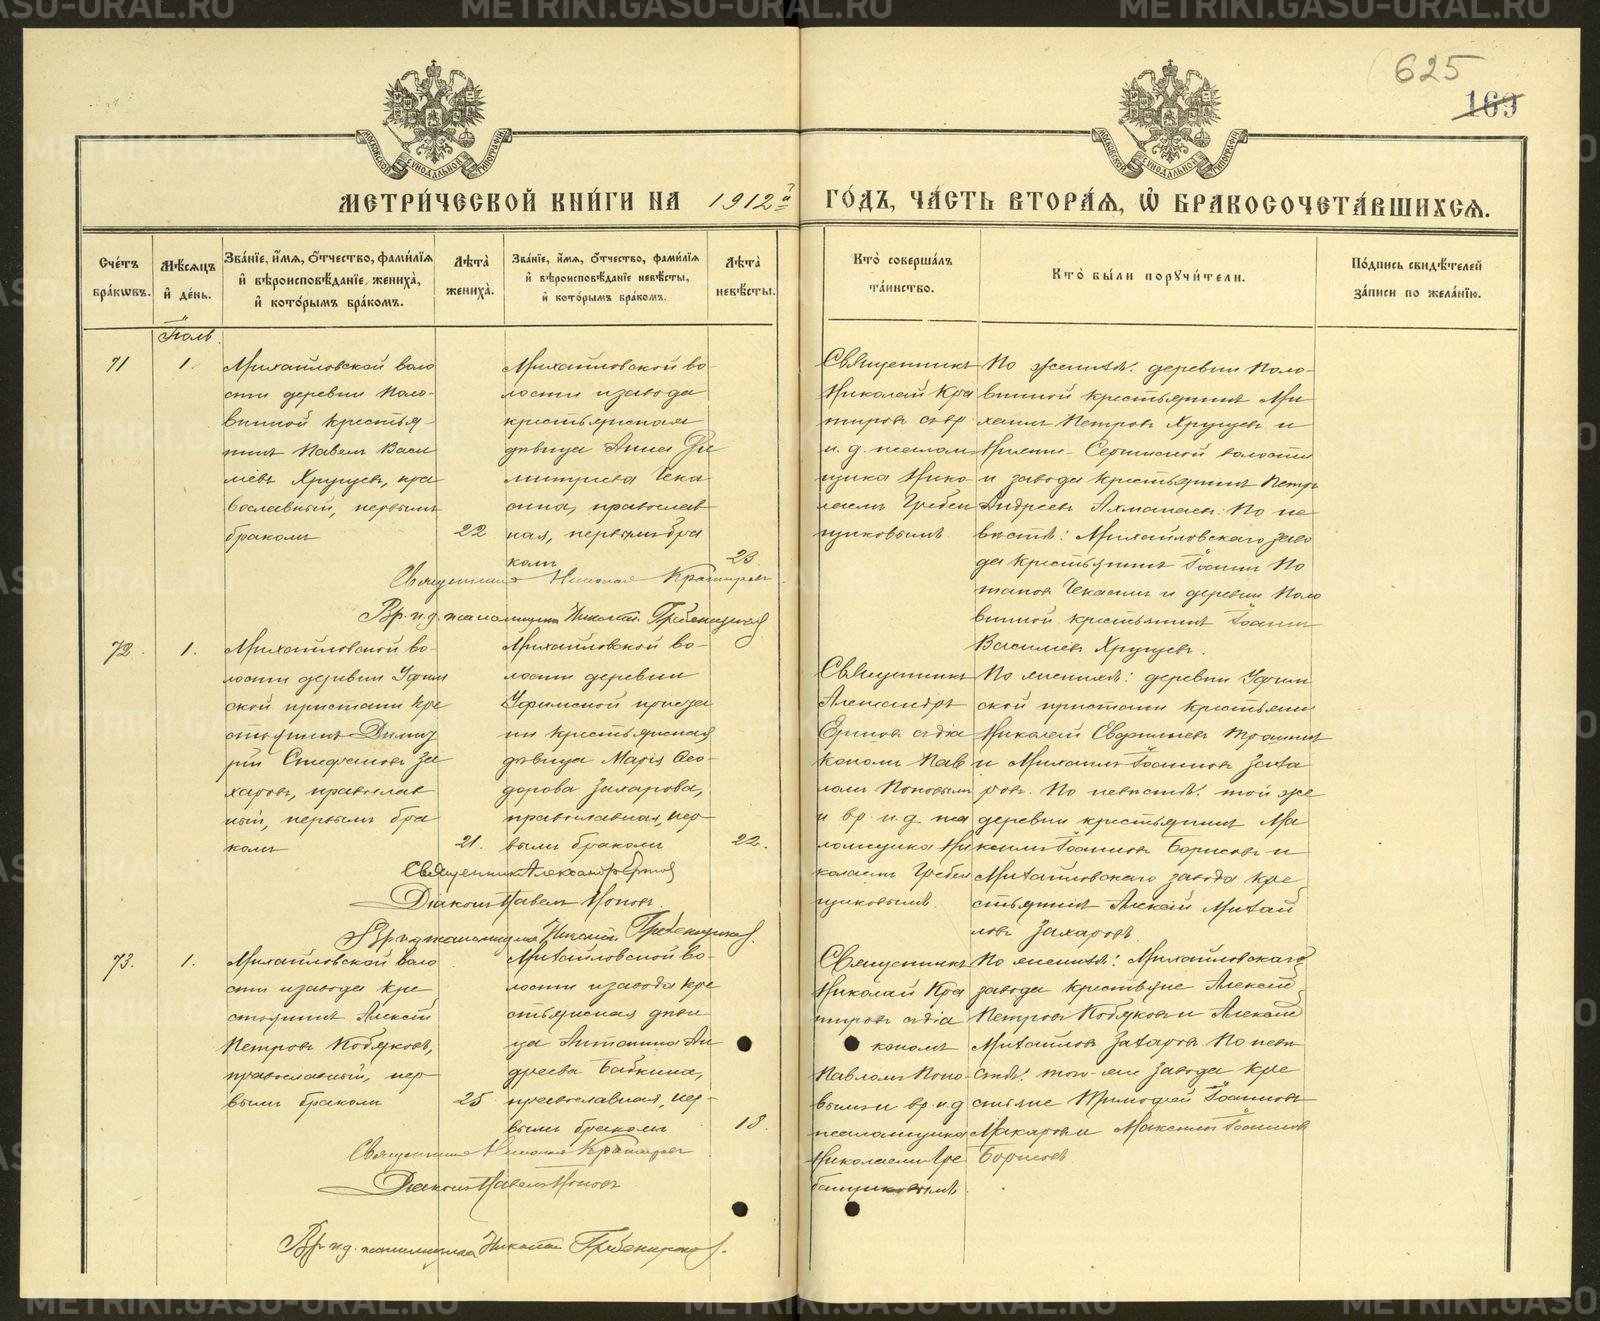 625
169
МЕТРИ́ЧЕСКОЙ КНИ́ГИ НА 1912й ГО́ДЪ, ЧА́СТЬ ВТОРА́Я, Ѡ҆ БРАКОСОЧЕТА́ВШИХСЯ.
Сче́тъ бра́кѡвъ.
Мѣ́сяцъ и҆ де́нь.
Зва́нїе, и҆́мя, ѻ҆́тчество, фами́лїя
и҆ вѣроисповѣ́данїе жениха̀,
и҆ кото́рымъ бра́комъ.
Лѣ́та̀ жениха̀.
Зва́нїе, и҆́мя, ѻ҆́тчество, фами́лїя
и҆ вѣроисповѣ́данїе невѣ́сты,
и҆ кото́рымъ бра́комъ.
Лѣ́та̀ невѣ́сты.
Кто̀ соверша́лъ
та́инство.
Кто̀ бы́ли поручи́тели.
По́дпись свидѣ́телей
за́писи по жела́нїю.
Іюль
71
1.
Михайловской воло
сти деревни Поло-
винной крестья-
нинъ Павелъ Васи
ліевъ Хрущевъ, пра
вославный, первымъ
бракомъ
22
Михайловской во-
лости и завода
крестьянская
дѣвица Анна Ди
митріева Чека
сина, православ
ная, первымъ бра
комъ
23.
Священникъ
Николай Кра
тировъ съ вр.
и. д. псалом
щика Нико
лаемъ Гребен
щиковымъ.
По женихѣ: деревни Поло-
винной крестьянинъ Ми
хаилъ Петровъ Хрущевъ и
Нижне-Сергинской волости
и завода крестьянинъ Петръ
Андреевъ Ахманаевъ. По не
вѣстѣ: Михайловскаго заво
да крестьянинъ Іоаннъ По
таповъ Чекасинъ и деревни Поло
винной крестьянинъ Іоаннъ
Василіевъ Хрущевъ.
Священникъ Николай Кратировъ
Вр. и. д. псаломщика Николай Гребенщиковъ
72.
1.
Михайловской во-
лости деревни Уфим
ской пристани кре
стьянинъ Димит
рій Стефановъ За
харовъ, православ
ный, первымъ бра
комъ
21.
Михайловской во-
лости деревни
Уфимской приста
ни крестьянская
дѣвица Марія Ѳео
дорова Захарова,
православная, пер-
вымъ бракомъ
22.
Священникъ
Александръ
Ершовъ съ діа
кономъ Пав
ломъ Поповымъ
и вр. и. д. пса
ломщика Ни
колаемъ Гребен
щиковымъ.
По женихѣ: деревни Уфим
ской пристани крестьяне
Николай Евфиміевъ Трошинъ
и Михаилъ Іоанновъ Заха
ровъ. По невѣстѣ: той же
деревни крестьянинъ Ма
ксимъ Іоанновъ Борисовъ и
Михайловскаго завода кре
стьянинъ Алексій Михай
ловъ Захаровъ
Священникъ Александръ Ершовъ
Діаконъ Павелъ Поповъ.
Вр. и. д. псаломщика Николай Гребенщиковъ.
73.
1.
Михайловской воло
сти и завода кре
стьянинъ Алексій
Петровъ Кобяковъ,
православный, пер-
вымъ бракомъ
25
Михайловской во-
лости и завода кре
стьянская дѣви
ца Антонина Ан
дреева Бабкина,
православная, пер-
вымъ бракомъ
18.
Священникъ
Николай Кра
тировъ съ діа
кономъ
Павломъ Попо-
вымъ и вр. и. д
псаломщика
Николаемъ Гре
бенщиковымъ.
По женихѣ: Михайловскаго
завода крестьяне Алексій
Петровъ Кобяковъ и Алексій
Михайловъ Захаровъ. По невѣ
стѣ: того-же завода кре
стьяне Тимофей Іоанновъ
Макаровъ и Максимъ Іоанновъ
Борисовъ
Священникъ Николай Кратировъ
Діаконъ Павелъ Поповъ
Вр. и. д. псаломщика Николай Гребенщиковъ.
METRIKI.GASU-URAL.RU